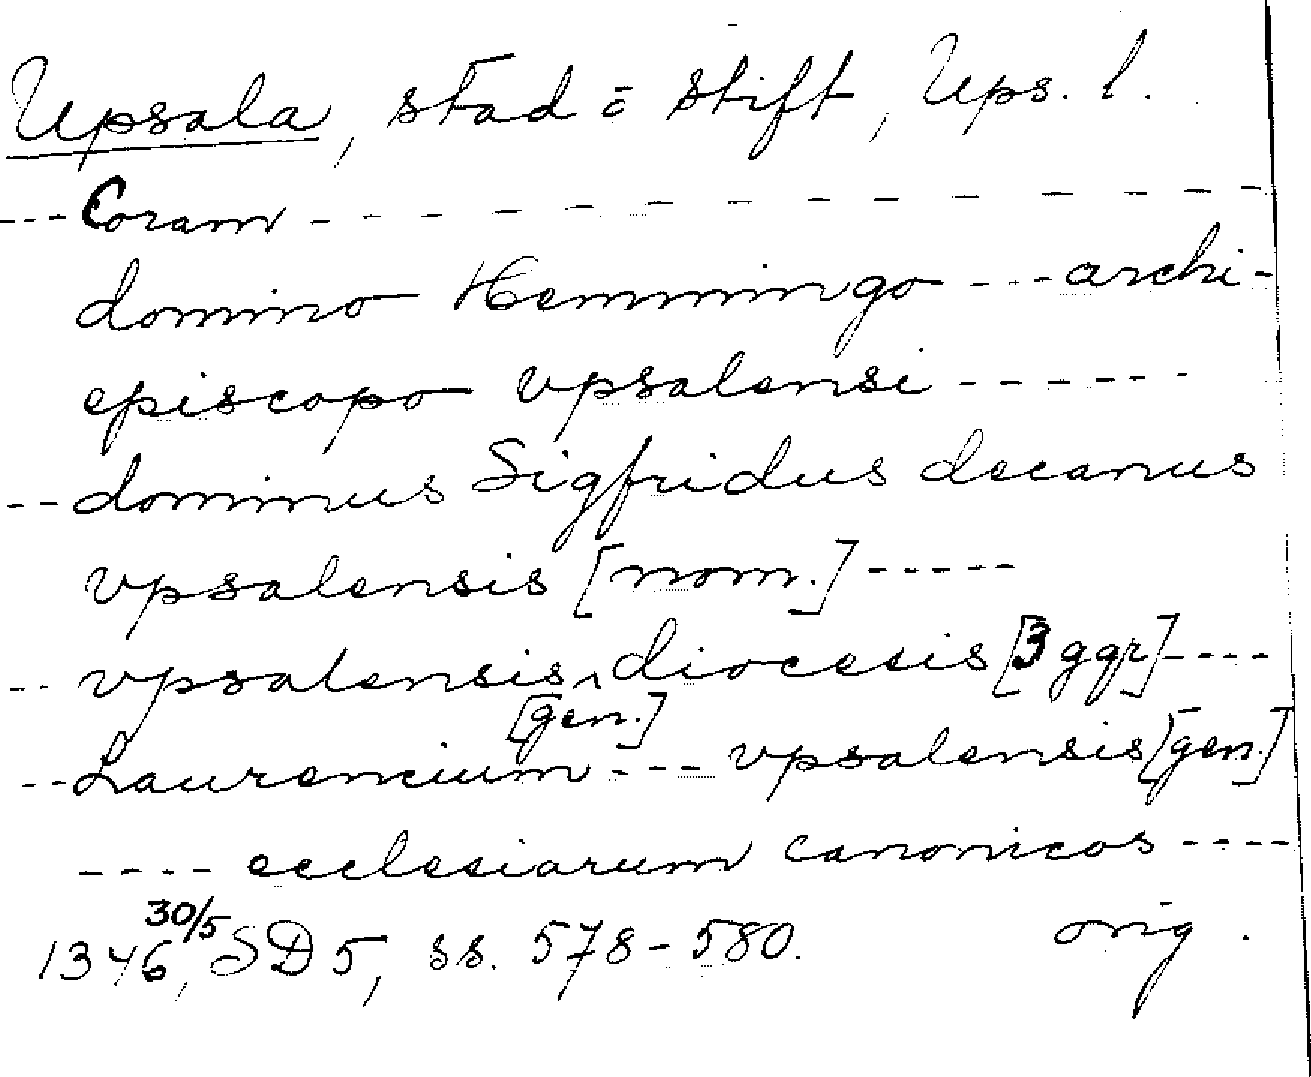 Upsala, stad o stift, Ups. l.
--- Coram - - - - - - - - - - - -
domino Hemmingo --- archi-
episcopo vpsalensi ------
-- dominus Sigfridus decanus
vpsalensis [nom.] -----
-- vpsalensis ^ diocesis [3 ggr] ----
[gen.]
-- Laurencium --- vpsalensis [gen.]
---- ecclesiarum canonicos ----
30/5
1346, SD 5, ss. 578-580. orig.